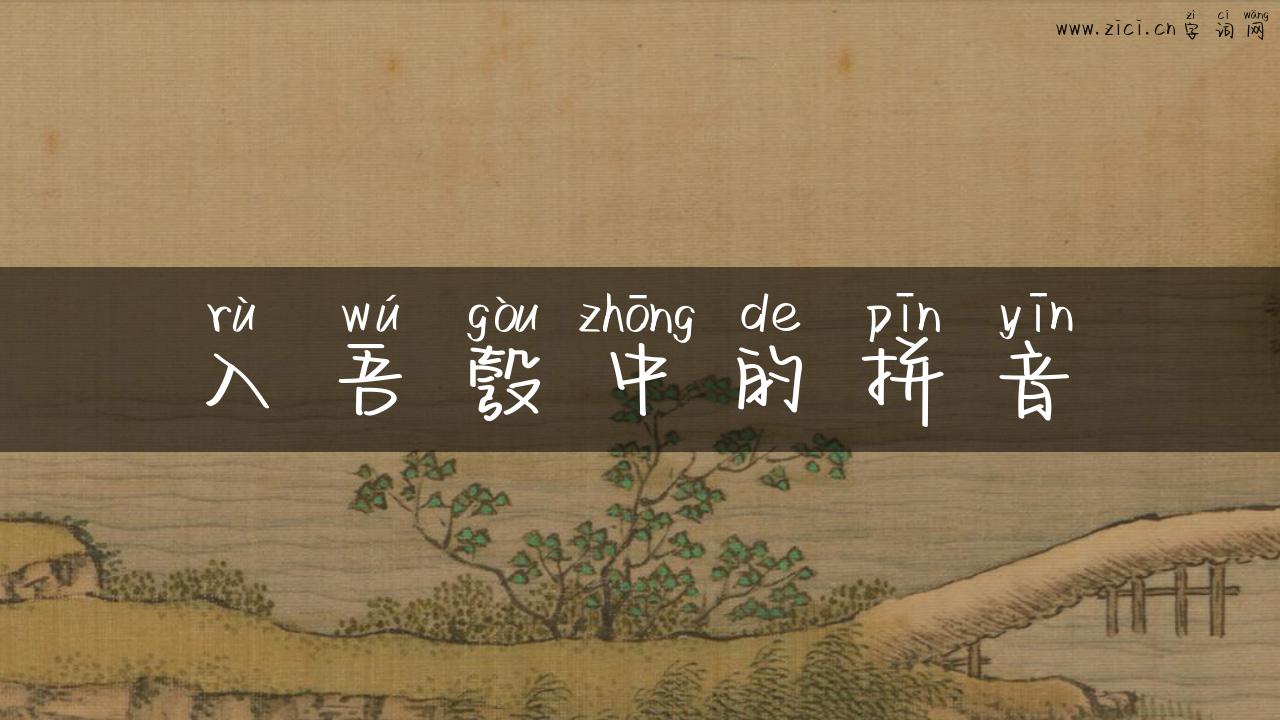 zì cí wǎng
www.zici.cn 字词网
rù wú gòu zhōng de pīn yīn
入吾彀中的拼音